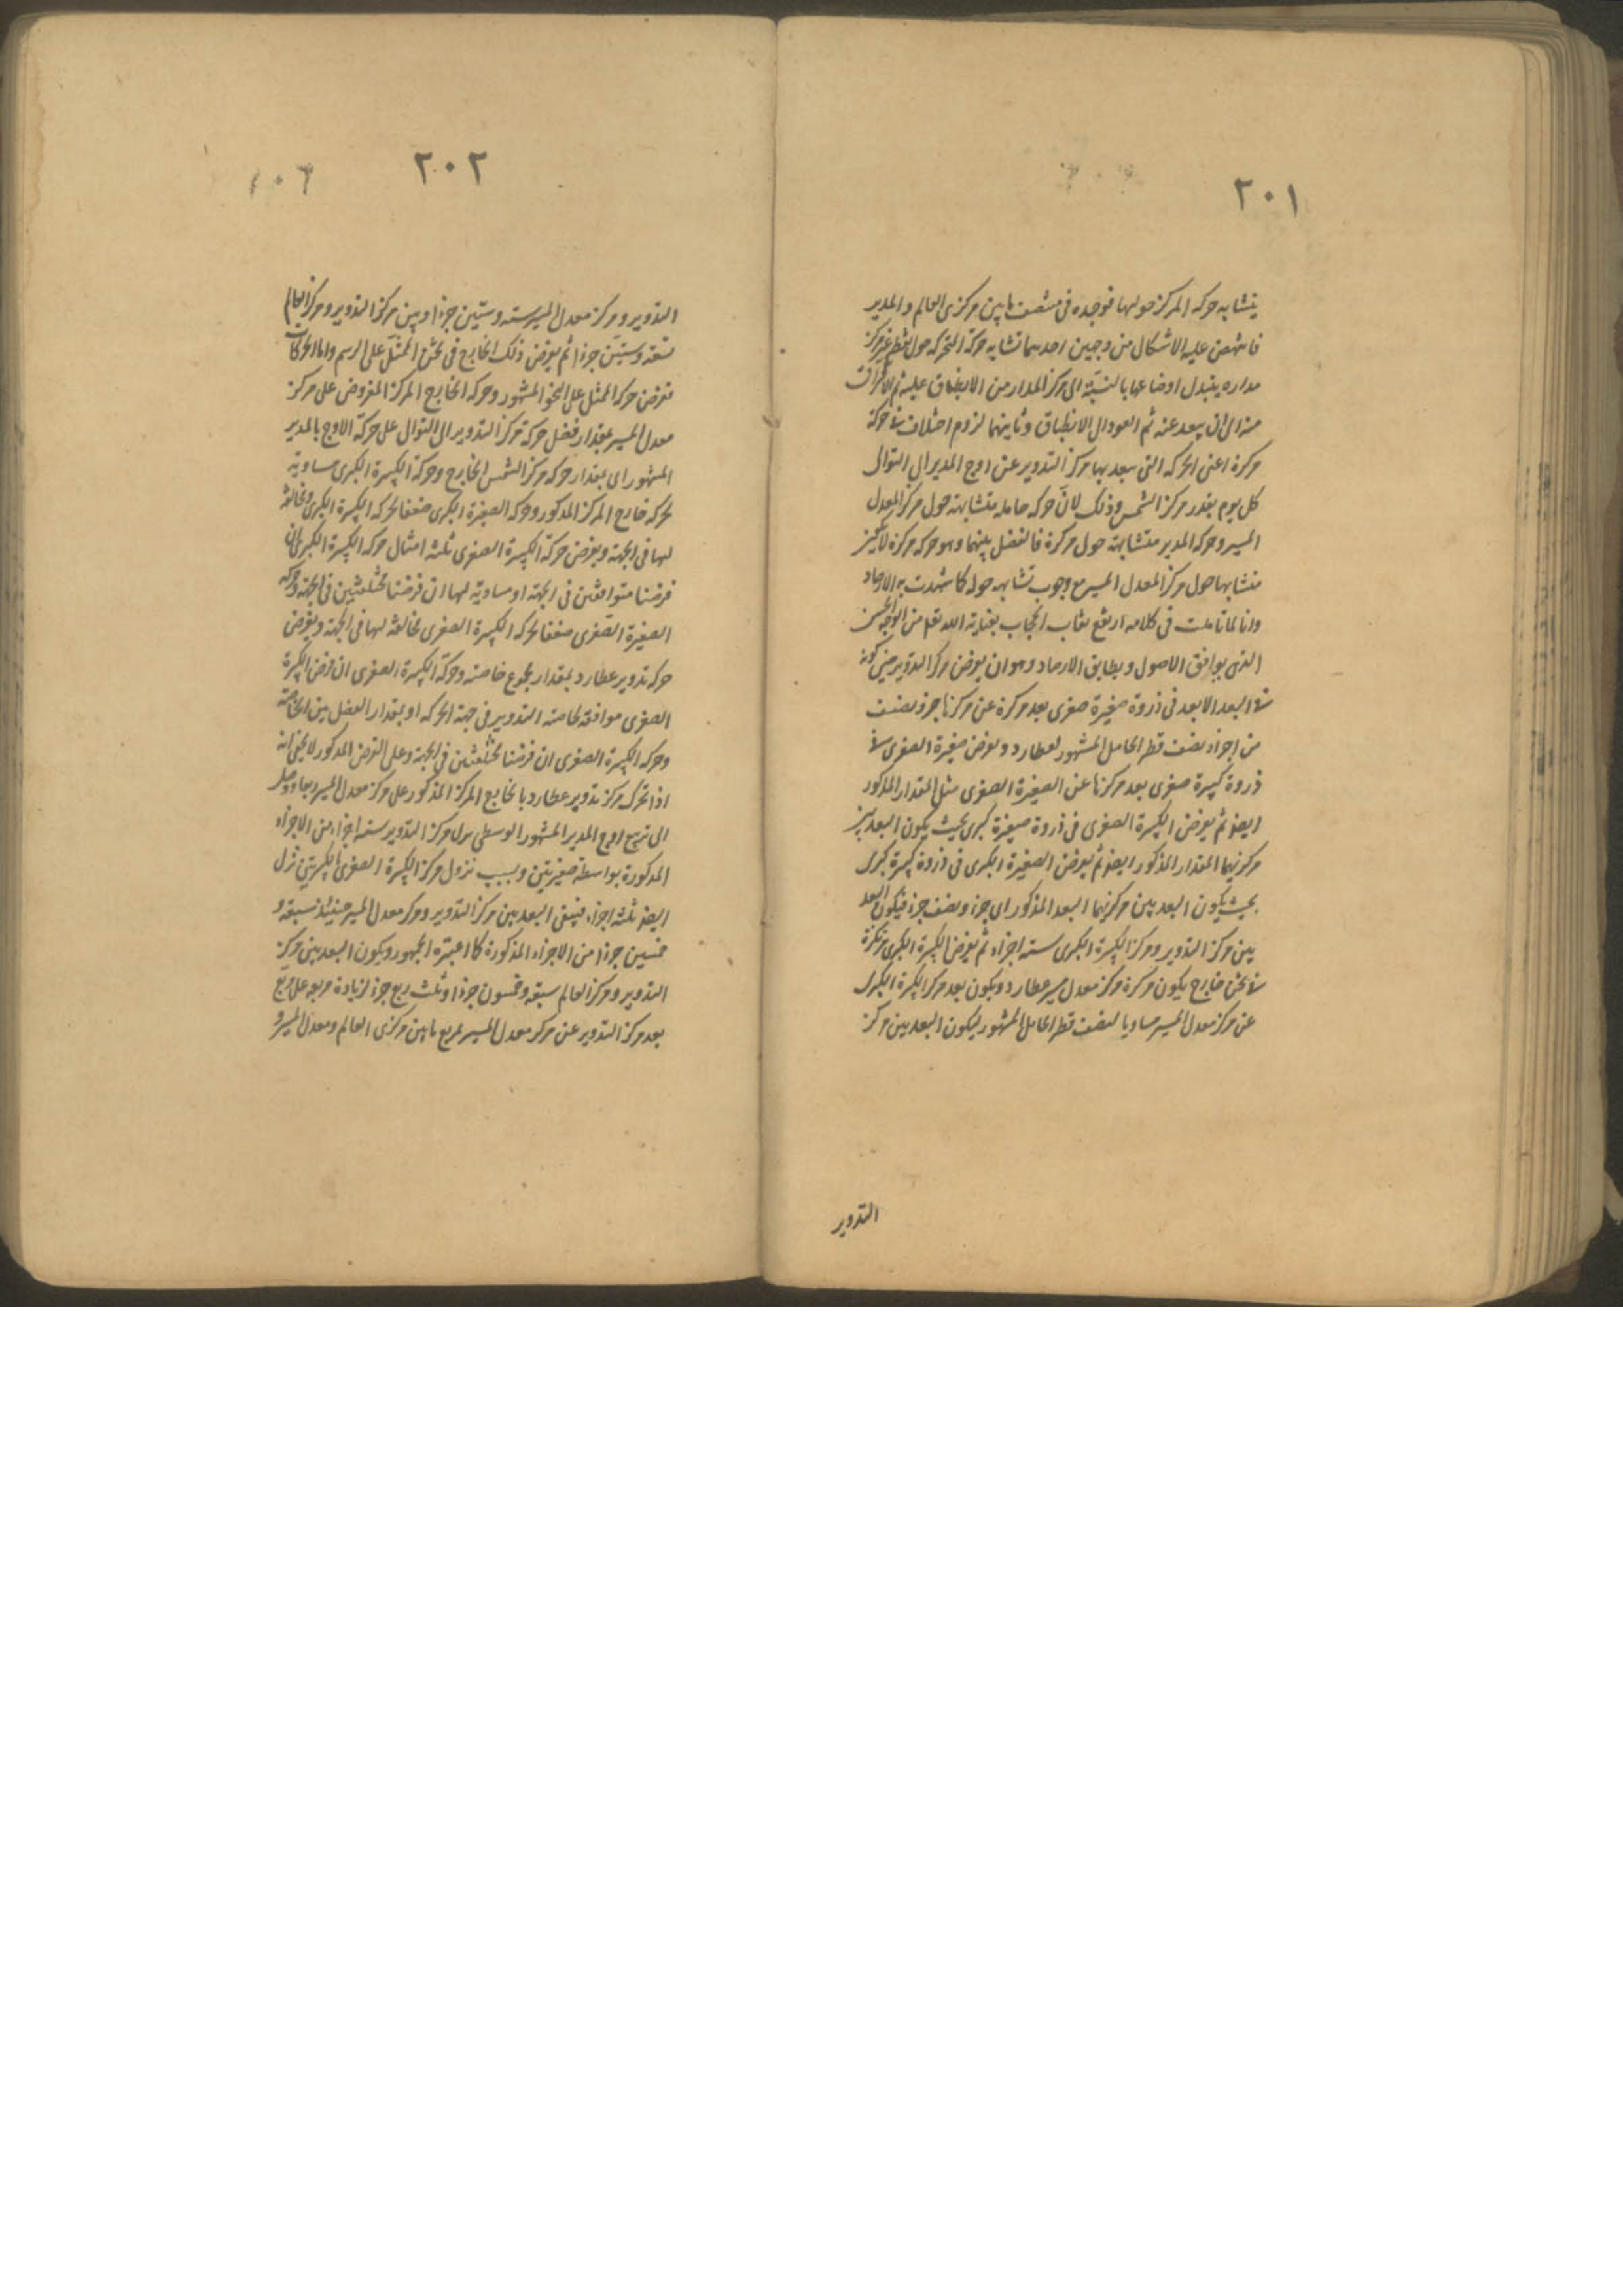 ٢٠١
يتشابه حركه المركز حولها فوجده فى منتصف مابين مركزى العالم والمدير
فانتهض عليه الاشكال من وجهين احدهما تشابه حركة المتحركه حول نقطه غير مركز
مداره يتبدل اوضاعها بالنسبة الى مركز المدار من الانطباق عليه ثم الانحراف
منه الى ان يبعد عنه ثم العود الى الانطباق وثانيهما لزوم اختلاف فى حركة
مركزه اعنى الحركه التى يبعد بها مركز التدوير عن اوج المدير الى التوالى
كل يوم بقدر مركز الشمس وذلك لان حركه حامله متشابهة حول مركز المعدل
المسير وحركه المدير متشابهة حول مركزه فالفضل بينهما وهو حركه مركزه لا يكون
متشابها حول مركز المعدل المسير مع وجوب تشابهه حوله كما شهدت به الارصاد
وانا لما تاملت فى كلامه ارتفع نقاب الحجاب بعناية الله تعالى من الوجه الحسن
الذى يوافق الاصول ويطابق الارصاد وهو ان يفرض مركز التدوير حين كونه
فى البعد الابعد فى ذروة صغيرة صغرى بعد مركزه عن مركزها جزء ونصف
من اجزاء نصف قطر الحامل المشهور لعطارد ونفرض صغيرة الصغرى فى
ذروة كبيرة صغرى بعد مركزها عن الصغيرة الصغرى مثل المقدار المذكور
ايضا ثم يفرض الكبيرة الصغرى فى ذروة صغيرة كبرى بحيث يكون البعد بين
مركزيهما المقدار المذكور ايضا ثم يفرض الصغيرة الكبرى فى ذروة كبيرة كبرى
بحيث يكون البعد بين مركزيهما البعد المذكور اى جزء ونصف جزء فيكون البعد
بين مركز التدوير ومركز الكبيرة الكبرى ستة اجزاء ثم يفرض الكبيرة الكبرى مركوزة
فى ثخن خارج يكون مركزه مركز معدل مسير عطارد ويكون بعد مركز الكبيرة الكبرى
عن مركز معدل المسير مساويا لنصف قطر الحامل المشهور ليكون البعد بين مركز
التدوير
٢٠٢
التدوير ومركز معدل المسير ستة وستين جزءا وبين مركز التدوير ومركز العالم
تسعة وستين جزءا ثم يفرض ذلك الخارج فى ثخن الممثل على الرسم واما الحركات
نفرض حركة الممثل على النحو المشهور وحركه الخارج المركز المفروض على مركز
معدل المسير بمقدار فضل حركة مركز التدوير الى التوالى على حركة الاوج بالمدير
المشهور اى بمقدار حركه مركز الشمس الخارج وحركة الكبيرة الكبرى مساوية
لحركه خارج المركز المذكور وحركه الصغيرة الكبرى ضعفا لحركه الكبيرة الكبرى مخالفة
لها فى الجهة ويفرض حركة الكبيرة الصغرى ثلثة امثال حركه الكبيرة الكبرى ان
فرضنا متوافقين فى الجهة او مساوية لها ان فرضنا مختلفتين فى الجهة وحركه
الصغيرة الصغرى ضعفا لحركه الكبيرة الصغرى مخالفة لها فى الجهة ويفرض
حركه تدوير عطارد بمقدار مجموع خاصته وحركة الكبيرة الصغرى ان فرض الكبيرة
الصغرى موافقة لخاصة التدوير فى جهة الحركه او بمقدار الفضل بين الخاصة
وحركه الكبيرة الصغرى ان فرضنا مختلفتين فى الجهة وعلى الفرض المذكور لا يخفى انه
اذا تحرك مركز تدوير عطارد بالخارج المركز المذكور على مركز معدل المسير ربعا ووصل
الى تربيع اوج المدير المشهور الوسطى نزل مركز التدوير ستة اجزاء من الاجزاء
المذكورة بواسطة صغيرتين وبسبب نزول مركز الكبيرة الصغرى بالكبرتين نزل
ايضا ثلثة اجزاء فيبقى البعد بين مركز التدوير ومركز معدل المسير حينئذ سبعة و
خمسين جزءا من الاجزاء المذكورة كما اعتبره الجمهور ويكون البعد بين مركز
التدوير ومركز العالم سبعة وخمسون جزءا وثلث ربع جزء لزيادة مربعه على مربع
بعد مركز التدوير عن مركز معدل المسير بمربع مابين مركزى العالم ومعدل المسير و